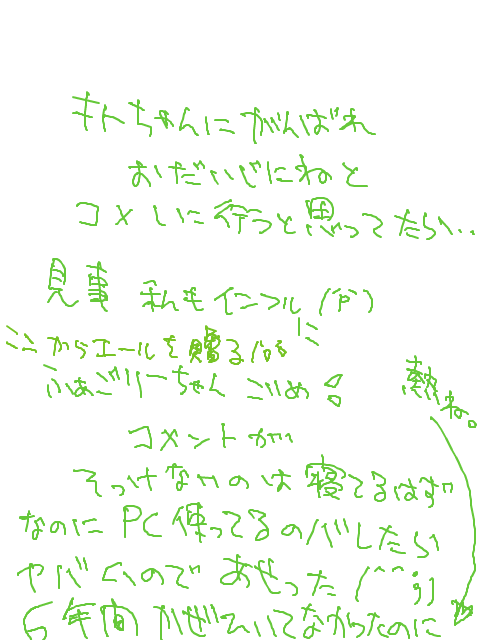 キトちゃんにがんばれ
おだいじにねと
コメしに行こうと思ってたら、、
見事 私もインフル
ここからエールを贈る
ふぁごりーちゃん ごめ
熱ね。
コメントが
そっけないのは寝てるはず
なのにPC使ってるのバレたら
ヤバいので あせった(^^;)
6年間かぜひいてなかったのに